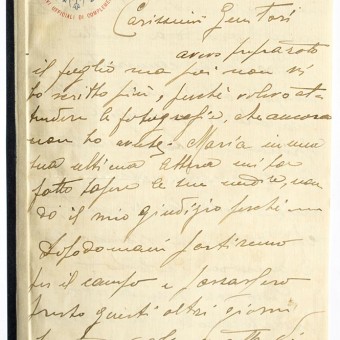 UFFICIALI DI COMPLEM
Carissimi Genitori
avevo preparato
il foglio ma poi non vi
ho scritto più, perché volevo at-
tendere le fotografie, che ancora
non ho avute. Maria in una
sua ultima lettera mi fa
fatto sapere le sue medie, non
dò il mio giudizio perché
Dopodomani partiremo
per il campo e passeranno
presto questi altri giorni